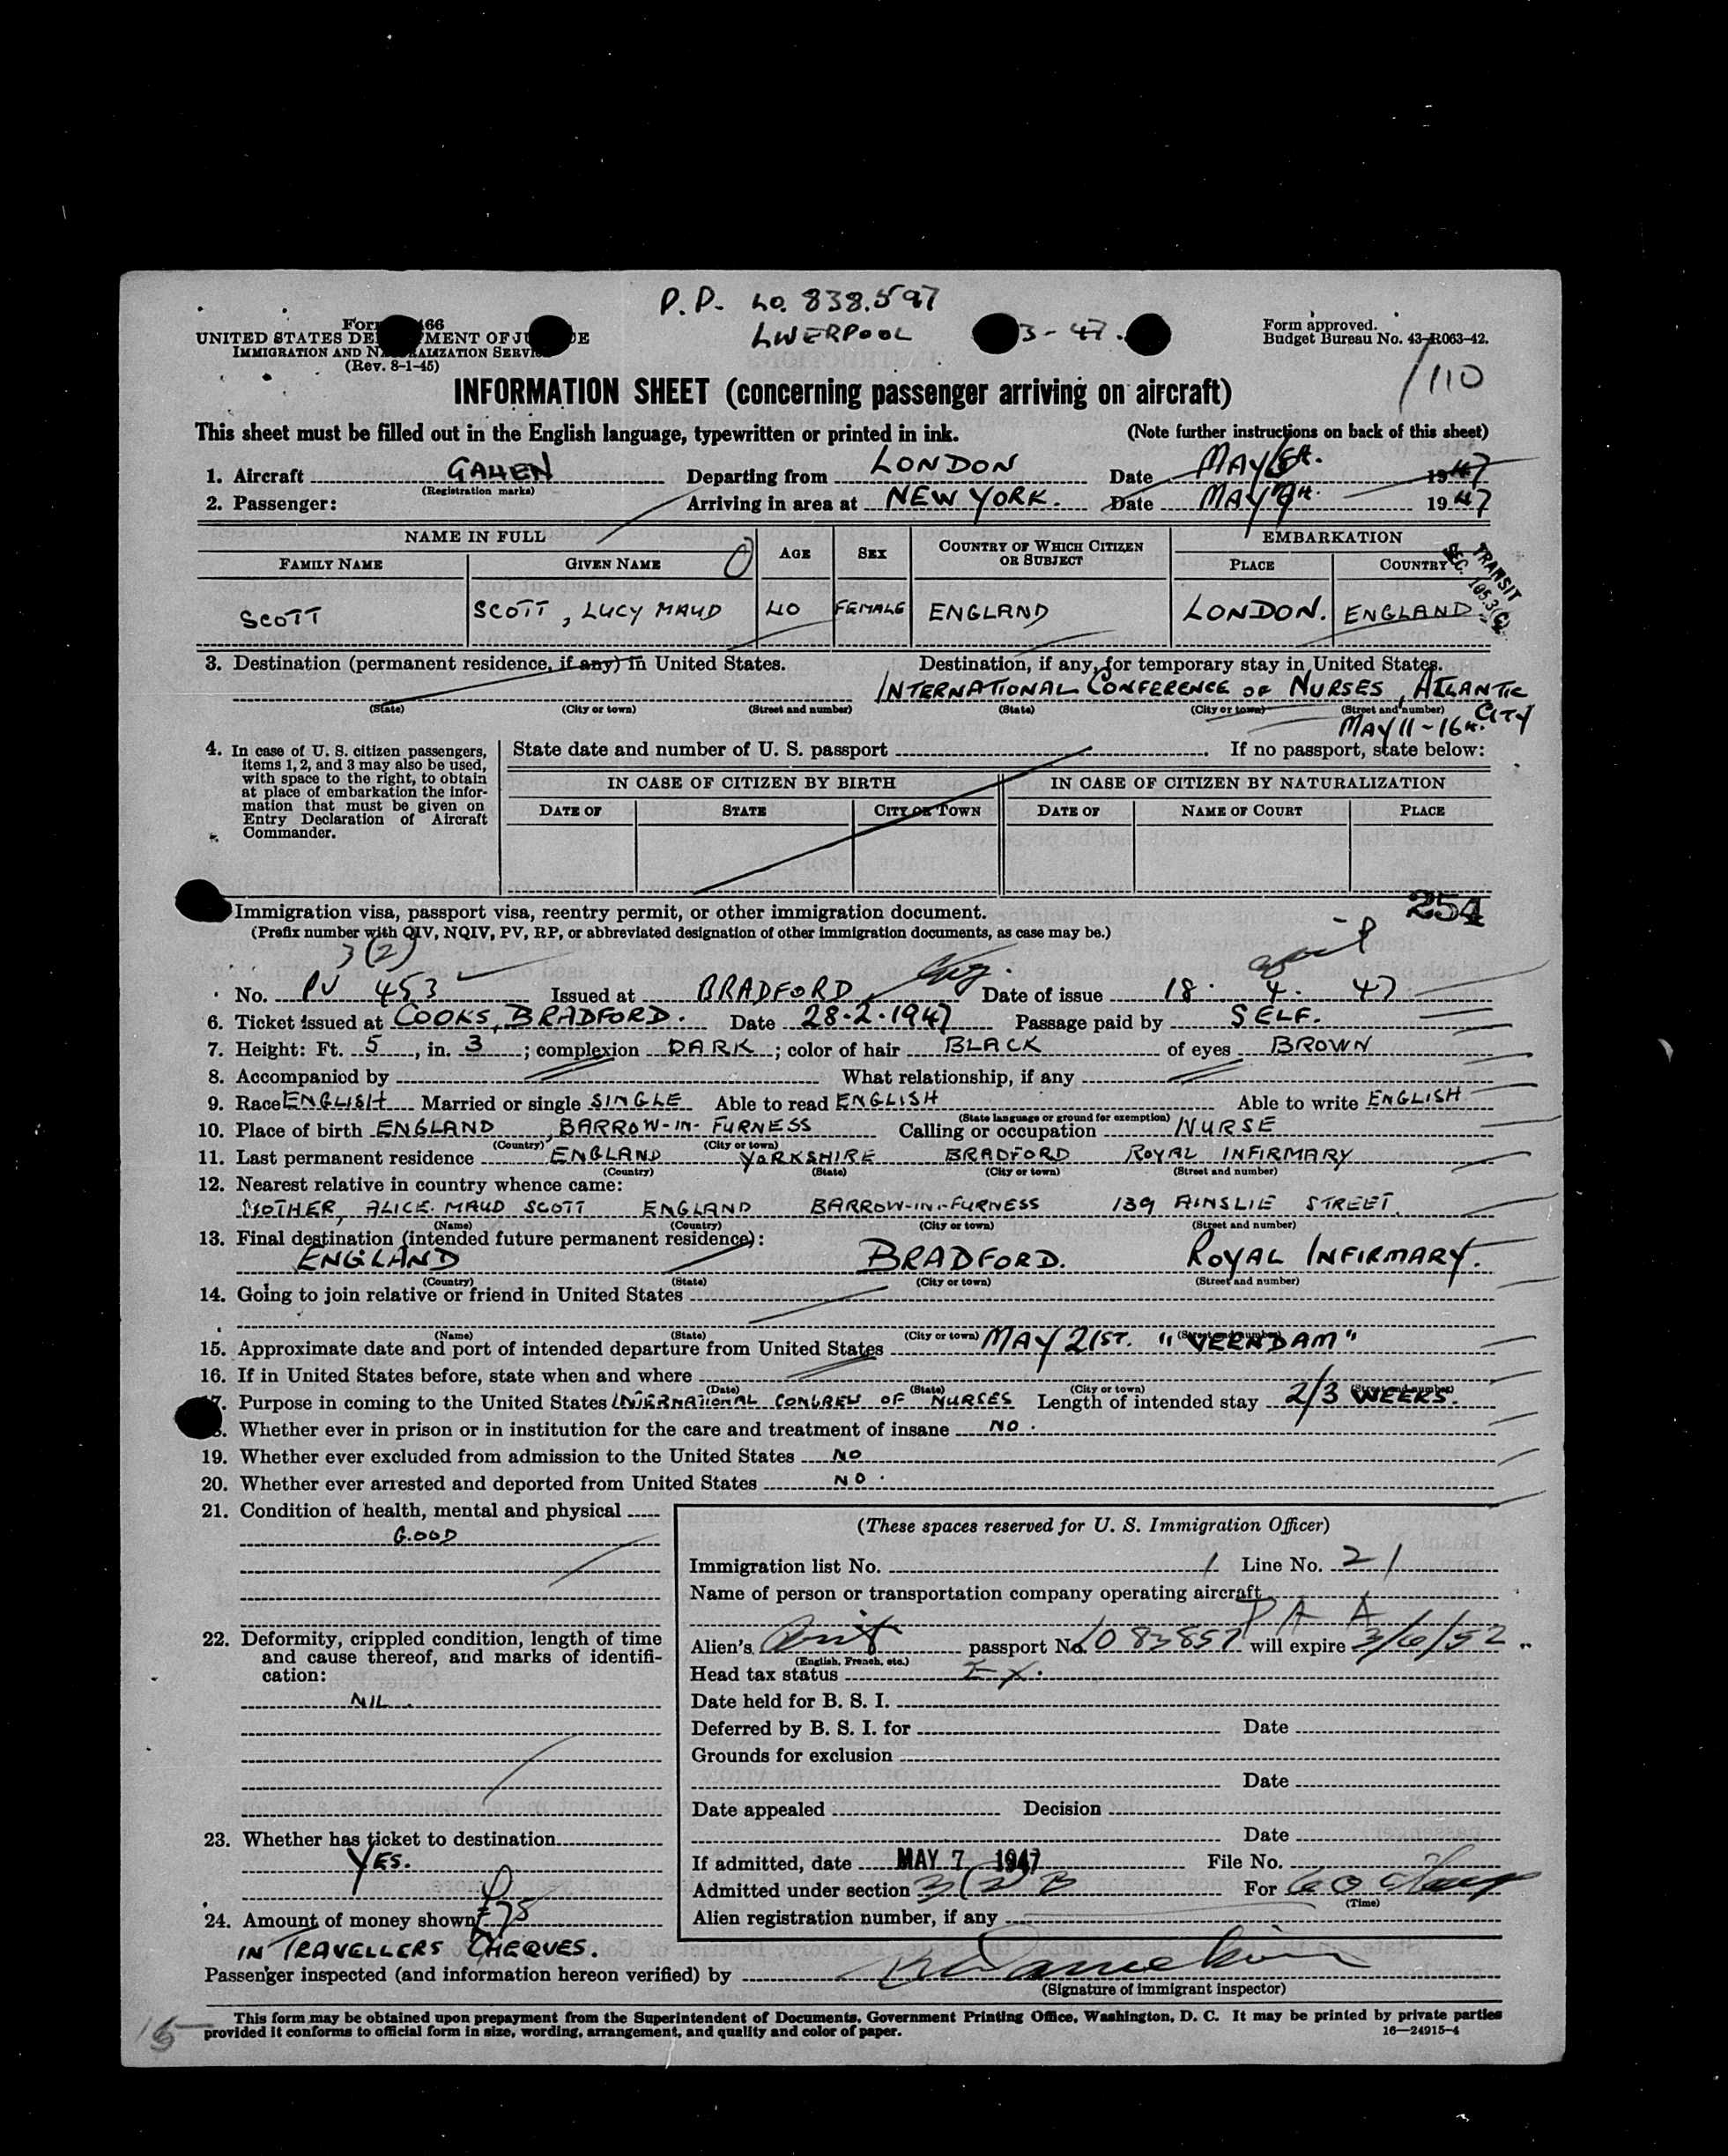 P.P. No. 838.597
LIVERPOOL 3-47.
Form 466
UNITED STATES DEPARTMENT OF JUSTICE
IMMIGRATION AND NATURALIZATION SERVICE
(Rev. 8-1-45)
Form approved.
Budget Bureau No. 43-R063-42.
110
INFORMATION SHEET (concerning passenger arriving on aircraft)
This sheet must be filled out in the English language, typewritten or printed in ink. (Note further instructions on back of this sheet)
1. Aircraft GAHEN Departing from LONDON Date MAY 6th. 1947
(Registration marks)
2. Passenger: Arriving in area at NEW YORK. Date MAY 7th. 1947
NAME IN FULL AGE SEX COUNTRY OF WHICH CITIZEN OR SUBJECT EMBARKATION
FAMILY NAME GIVEN NAME PLACE COUNTRY
TRANSIT
SEC. 105.3(C)
SCOTT SCOTT, LUCY MAUD 40 FEMALE ENGLAND LONDON. ENGLAND
3. Destination (permanent residence, if any) in United States. Destination, if any, for temporary stay in United States.
INTERNATIONAL CONFERENCE OF NURSES, ATLANTIC CITY
(State) (City or town) (Street and number) (State) (City or town) (Street and number)
MAY 11-16th.
4. In case of U. S. citizen passengers, items 1, 2, and 3 may also be used, with space to the right, to obtain at place of embarkation the information that must be given on Entry Declaration of Aircraft Commander.
State date and number of U. S. passport If no passport, state below:
IN CASE OF CITIZEN BY BIRTH IN CASE OF CITIZEN BY NATURALIZATION
DATE OF STATE CITY OR TOWN DATE OF NAME OF COURT PLACE
254
Immigration visa, passport visa, reentry permit, or other immigration document.
(Prefix number with QIV, NQIV, PV, RP, or abbreviated designation of other immigration documents, as case may be.)
3(2)
No. PV 453 Issued at BRADFORD Date of issue 18. 4. 47
6. Ticket issued at COOKS, BRADFORD. Date 28.2.1947 Passage paid by SELF.
7. Height: Ft. 5, in. 3; complexion DARK; color of hair BLACK of eyes BROWN
8. Accompanied by What relationship, if any
9. Race ENGLISH Married or single SINGLE Able to read ENGLISH Able to write ENGLISH
(State language or ground for exemption)
10. Place of birth ENGLAND, BARROW-IN-FURNESS Calling or occupation NURSE
(Country) (City or town)
11. Last permanent residence ENGLAND YORKSHIRE BRADFORD ROYAL INFIRMARY
(Country) (State) (City or town) (Street and number)
12. Nearest relative in country whence came:
MOTHER, ALICE MAUD SCOTT ENGLAND BARROW-IN-FURNESS 139 AINSLIE STREET.
(Name) (Country) (City or town) (Street and number)
13. Final destination (intended future permanent residence):
ENGLAND BRADFORD. ROYAL INFIRMARY.
(Country) (State) (City or town) (Street and number)
14. Going to join relative or friend in United States
(Name) (State) (City or town) (Street and number)
15. Approximate date and port of intended departure from United States MAY 21ST. "VEENDAM"
16. If in United States before, state when and where
(Date) (State) (City or town) (Street and number)
17. Purpose in coming to the United States INTERNATIONAL CONGRESS OF NURSES Length of intended stay 2/3 WEEKS.
8. Whether ever in prison or in institution for the care and treatment of insane NO.
19. Whether ever excluded from admission to the United States NO
20. Whether ever arrested and deported from United States NO.
21. Condition of health, mental and physical
GOOD
22. Deformity, crippled condition, length of time and cause thereof, and marks of identification:
NIL.
23. Whether has ticket to destination
YES.
24. Amount of money shown £75
IN TRAVELLERS CHEQUES.
(These spaces reserved for U. S. Immigration Officer)
Immigration list No. 1 Line No. 21
Name of person or transportation company operating aircraft
P A A
Alien's Brit passport No. will expire 3/6/52
(English, French, etc.)
Head tax status Ex.
Date held for B. S. I.
Deferred by B. S. I. for Date
Grounds for exclusion
Date
Date appealed Decision
Date
If admitted, date MAY 7 1947 File No.
Admitted under section 3(2)B For 60 days
(Time)
Alien registration number, if any
Passenger inspected (and information hereon verified) by
(Signature of immigrant inspector)
This form may be obtained upon prepayment from the Superintendent of Documents, Government Printing Office, Washington, D. C. It may be printed by private parties
provided it conforms to official form in size, wording, arrangement, and quality and color of paper. 16—24915-4